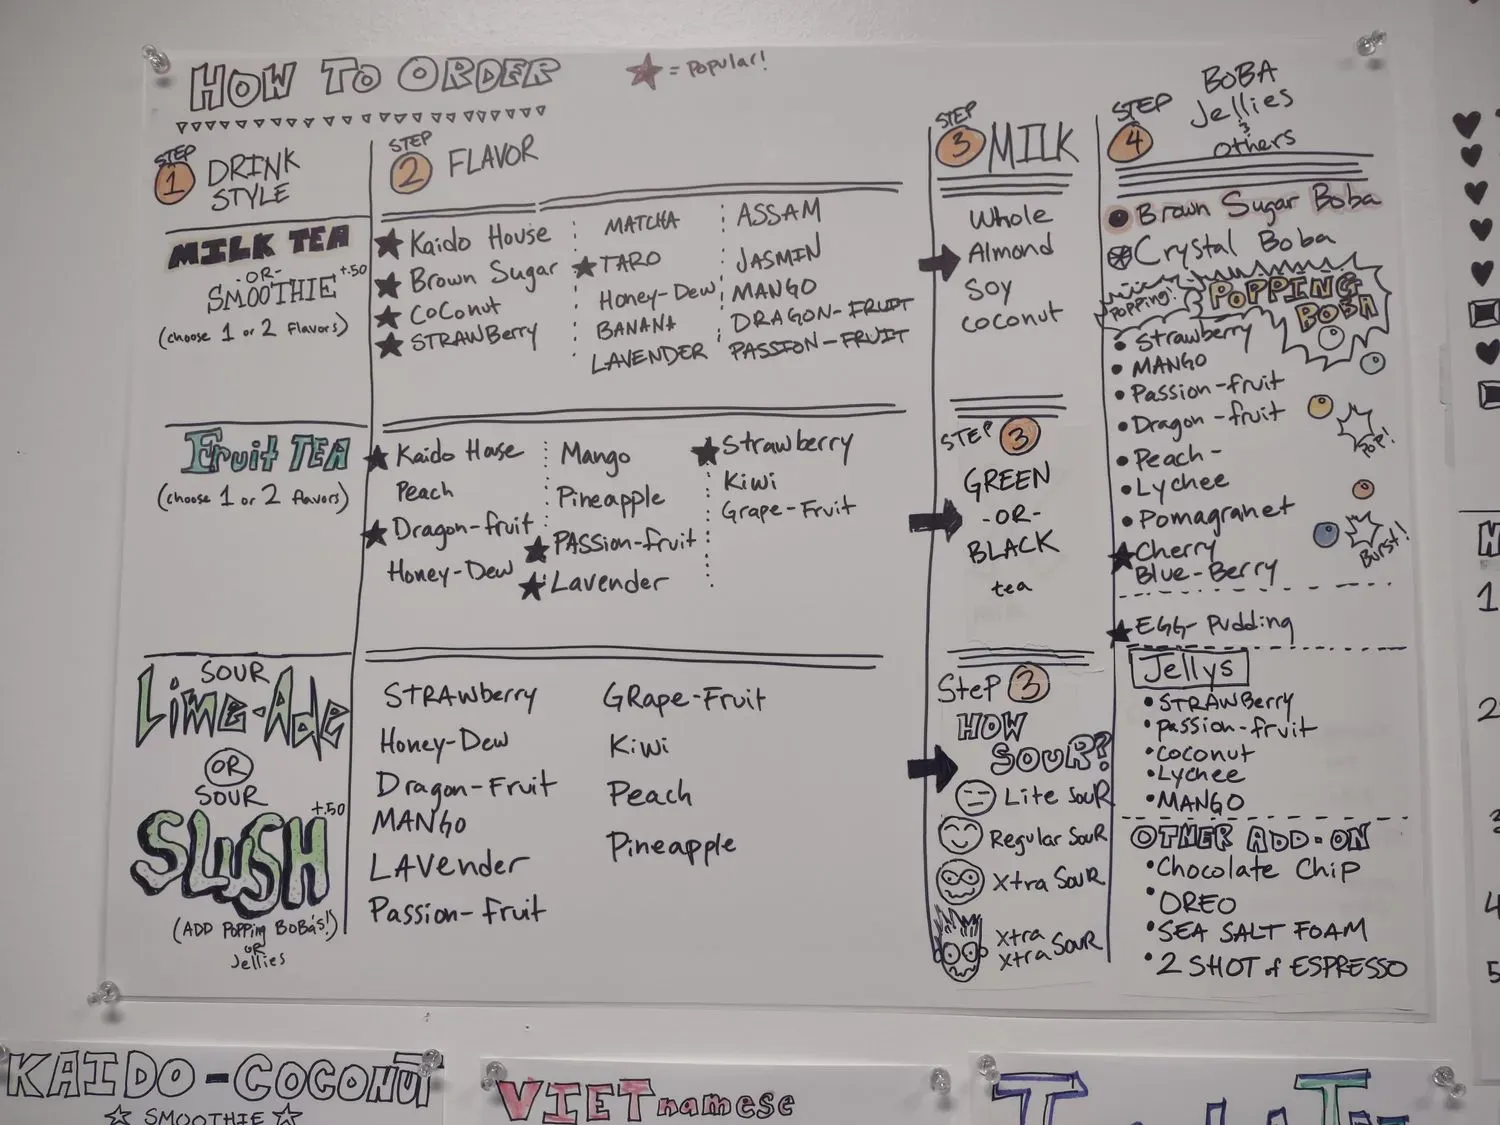 HOW TO ORDER
★ = Popular!
STEP
1 DRINK
STYLE
MILK TEA
-OR-
SMOOTHIE +.50
(choose 1 or 2 Flavors)
STEP
2 FLAVOR
★ Kaido House
★ Brown Sugar
★ Coconut
★ STRAWBerry
MATCHA
★ TARO
Honey-Dew
BANANA
LAVENDER
ASSAM
JASMIN
MANGO
DRAGON-FRUIT
PASSION-FRUIT
STEP
3 MILK
Whole
Almond
SOY
coconut
Fruit TEA
(choose 1 or 2 flavors)
★ Kaido House
Peach
★ Dragon-fruit
Honey-Dew
Mango
Pineapple
★ PASSion-fruit
★ Lavender
★ Strawberry
Kiwi
Grape-Fruit
STEP 3
GREEN
-OR-
BLACK
tea
SOUR
Lime-Ade
OR
SOUR
SLUSH +.50
(ADD Popping BOBA's!)
OR
Jellies
STRAWberry
Honey-Dew
Dragon-Fruit
MANGO
LAVender
Passion-fruit
GRape-Fruit
Kiwi
Peach
Pineapple
SteP 3
HOW
SOUR?
Lite SOUR
Regular SOUR
Xtra SOUR
Xtra
Xtra SOUR
STEP
4 BOBA
Jellies
&
others
Brown Sugar Boba
Crystal Boba
Popping!
POPPING
BOBA
• Strawberry
• MANGO
• Passion-fruit
• Dragon-fruit
• Peach-
• Lychee
• Pomagranet
★ Cherry
Blue-Berry
POP!
BURST!
★ EGG-Pudding
Jellys
• STRAWBerry
• passion-fruit
• coconut
• Lychee
• MANGO
OTHER ADD-ON
• Chocolate Chip
• OREO
• SEA SALT FOAM
• 2 SHOT of ESPRESSO
KAIDO-COCONUT
☆ SMOOTHIE ☆
VIETnamese
1
2
4
5